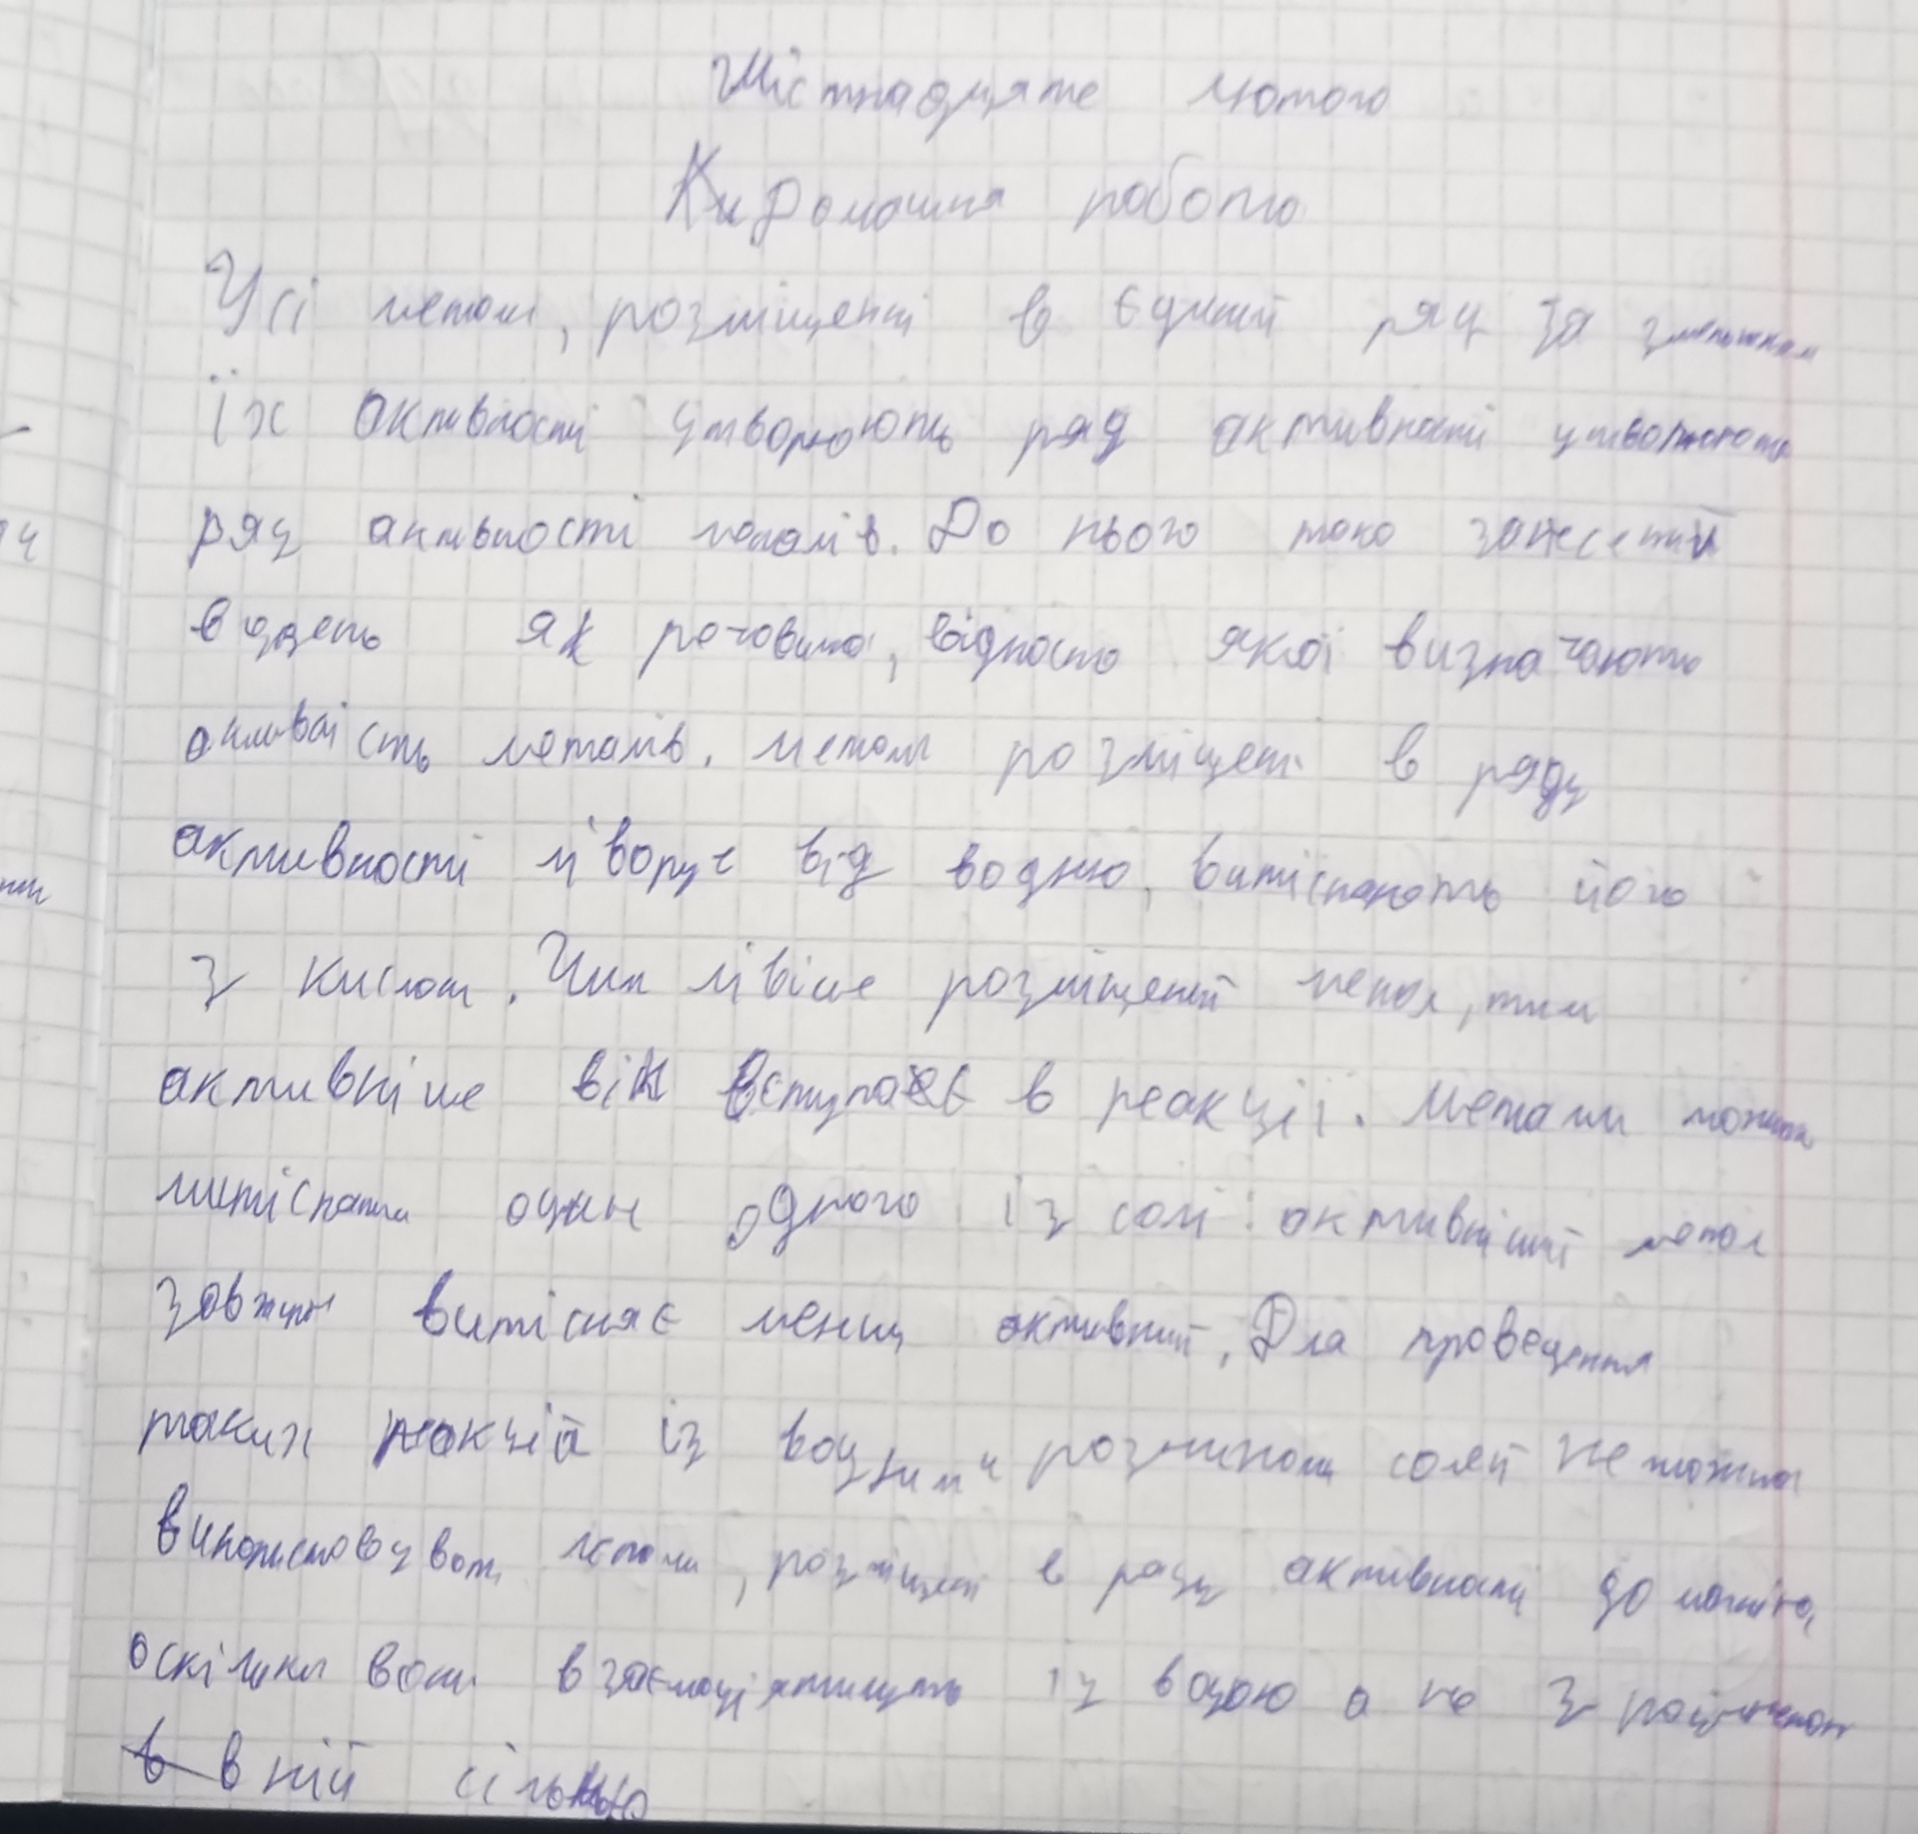 Шістнадцяте лютого
Домашня робота
Усі метали, розміщенні в єдиний ряд за зменшенням
їх активності утворюють ряд активності утворюють
ряд активності металів. До нього тако занесений
водень як речовина, відность якої визначають
активність металів. метали розміщені в ряду
активності ліворуч від водню, витісняють його
з кислот. Чим лівіше розміщений метал, тим
активніше він вступає в реакції. Метали можна
витісняти один одного із солі: активніший метал
завжди витісняє менш активний, Для проведення
таких реакцій із водними розчинами солей не можна
використовувати метали, розміщені в ряду активності до магнію,
оскільки вони взаємодіятимуть із водою а не з розчиненою
в ній сіллю